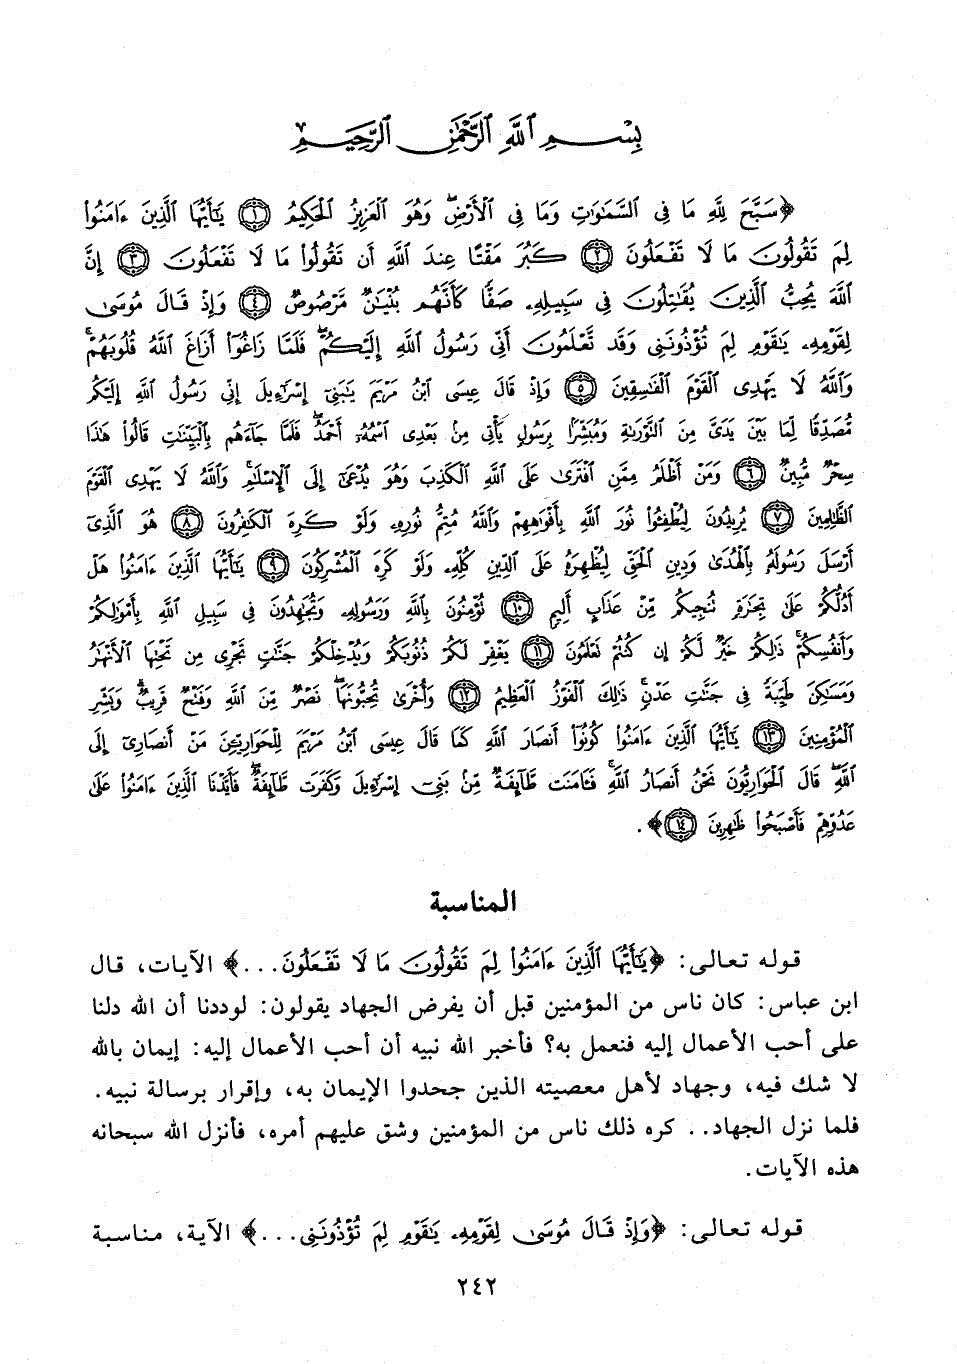 بِسْمِ ٱللَّهِ ٱلرَّحْمَٰنِ ٱلرَّحِيمِ
﴿سَبَّحَ لِلَّهِ مَا فِى ٱلسَّمَٰوَٰتِ وَمَا فِى ٱلْأَرْضِ ۖ وَهُوَ ٱلْعَزِيزُ ٱلْحَكِيمُ ١ يَٰٓأَيُّهَا ٱلَّذِينَ ءَامَنُوا۟
لِمَ تَقُولُونَ مَا لَا تَفْعَلُونَ ٢ كَبُرَ مَقْتًا عِندَ ٱللَّهِ أَن تَقُولُوا۟ مَا لَا تَفْعَلُونَ ٣ إِنَّ
ٱللَّهَ يُحِبُّ ٱلَّذِينَ يُقَٰتِلُونَ فِى سَبِيلِهِۦ صَفًّا كَأَنَّهُم بُنْيَٰنٌ مَّرْصُوصٌ ٤ وَإِذْ قَالَ مُوسَىٰ
لِقَوْمِهِۦ يَٰقَوْمِ لِمَ تُؤْذُونَنِى وَقَد تَّعْلَمُونَ أَنِّى رَسُولُ ٱللَّهِ إِلَيْكُمْ ۖ فَلَمَّا زَاغُوٓا۟ أَزَاغَ ٱللَّهُ قُلُوبَهُمْ ۚ
وَٱللَّهُ لَا يَهْدِى ٱلْقَوْمَ ٱلْفَٰسِقِينَ ٥ وَإِذْ قَالَ عِيسَى ٱبْنُ مَرْيَمَ يَٰبَنِىٓ إِسْرَٰٓءِيلَ إِنِّى رَسُولُ ٱللَّهِ إِلَيْكُم
مُّصَدِّقًا لِّمَا بَيْنَ يَدَىَّ مِنَ ٱلتَّوْرَىٰةِ وَمُبَشِّرًۢا بِرَسُولٍ يَأْتِى مِنۢ بَعْدِى ٱسْمُهُۥٓ أَحْمَدُ ۖ فَلَمَّا جَآءَهُم بِٱلْبَيِّنَٰتِ قَالُوا۟ هَٰذَا
سِحْرٌ مُّبِينٌ ٦ وَمَنْ أَظْلَمُ مِمَّنِ ٱفْتَرَىٰ عَلَى ٱللَّهِ ٱلْكَذِبَ وَهُوَ يُدْعَىٰٓ إِلَى ٱلْإِسْلَٰمِ ۚ وَٱللَّهُ لَا يَهْدِى ٱلْقَوْمَ
ٱلظَّٰلِمِينَ ٧ يُرِيدُونَ لِيُطْفِـُٔوا۟ نُورَ ٱللَّهِ بِأَفْوَٰهِهِمْ وَٱللَّهُ مُتِمُّ نُورِهِۦ وَلَوْ كَرِهَ ٱلْكَٰفِرُونَ ٨ هُوَ ٱلَّذِىٓ
أَرْسَلَ رَسُولَهُۥ بِٱلْهُدَىٰ وَدِينِ ٱلْحَقِّ لِيُظْهِرَهُۥ عَلَى ٱلدِّينِ كُلِّهِۦ وَلَوْ كَرِهَ ٱلْمُشْرِكُونَ ٩ يَٰٓأَيُّهَا ٱلَّذِينَ ءَامَنُوا۟ هَلْ
أَدُلُّكُمْ عَلَىٰ تِجَٰرَةٍ تُنجِيكُم مِّنْ عَذَابٍ أَلِيمٍ ١٠ تُؤْمِنُونَ بِٱللَّهِ وَرَسُولِهِۦ وَتُجَٰهِدُونَ فِى سَبِيلِ ٱللَّهِ بِأَمْوَٰلِكُمْ
وَأَنفُسِكُمْ ۚ ذَٰلِكُمْ خَيْرٌ لَّكُمْ إِن كُنتُمْ تَعْلَمُونَ ١١ يَغْفِرْ لَكُمْ ذُنُوبَكُمْ وَيُدْخِلْكُمْ جَنَّٰتٍ تَجْرِى مِن تَحْتِهَا ٱلْأَنْهَٰرُ
وَمَسَٰكِنَ طَيِّبَةً فِى جَنَّٰتِ عَدْنٍ ۚ ذَٰلِكَ ٱلْفَوْزُ ٱلْعَظِيمُ ١٢ وَأُخْرَىٰ تُحِبُّونَهَا ۖ نَصْرٌ مِّنَ ٱللَّهِ وَفَتْحٌ قَرِيبٌ ۗ وَبَشِّرِ
ٱلْمُؤْمِنِينَ ١٣ يَٰٓأَيُّهَا ٱلَّذِينَ ءَامَنُوا۟ كُونُوٓا۟ أَنصَارَ ٱللَّهِ كَمَا قَالَ عِيسَى ٱبْنُ مَرْيَمَ لِلْحَوَارِيِّـۧنَ مَنْ أَنصَارِىٓ إِلَى
ٱللَّهِ ۖ قَالَ ٱلْحَوَارِيُّونَ نَحْنُ أَنصَارُ ٱللَّهِ ۖ فَـَٔامَنَت طَّآئِفَةٌ مِّنۢ بَنِىٓ إِسْرَٰٓءِيلَ وَكَفَرَت طَّآئِفَةٌ ۖ فَأَيَّدْنَا ٱلَّذِينَ ءَامَنُوا۟ عَلَىٰ
عَدُوِّهِمْ فَأَصْبَحُوا۟ ظَٰهِرِينَ ١٤﴾.
المناسبة
قوله تعالى: ﴿يَٰٓأَيُّهَا ٱلَّذِينَ ءَامَنُوا۟ لِمَ تَقُولُونَ مَا لَا تَفْعَلُونَ...﴾ الآيات، قال
ابن عباس: كان ناس من المؤمنين قبل أن يفرض الجهاد يقولون: لوددنا أن الله دلنا
على أحب الأعمال إليه فنعمل به؟ فأخبر الله نبيه أن أحب الأعمال إليه: إيمان بالله
لا شك فيه، وجهاد لأهل معصيته الذين جحدوا الإيمان به، وإقرار برسالة نبيه.
فلما نزل الجهاد.. كره ذلك ناس من المؤمنين وشق عليهم أمره، فأنزل الله سبحانه
هذه الآيات.
قوله تعالى: ﴿وَإِذْ قَالَ مُوسَىٰ لِقَوْمِهِۦ يَٰقَوْمِ لِمَ تُؤْذُونَنِى...﴾ الآية، مناسبة
٢٤٢